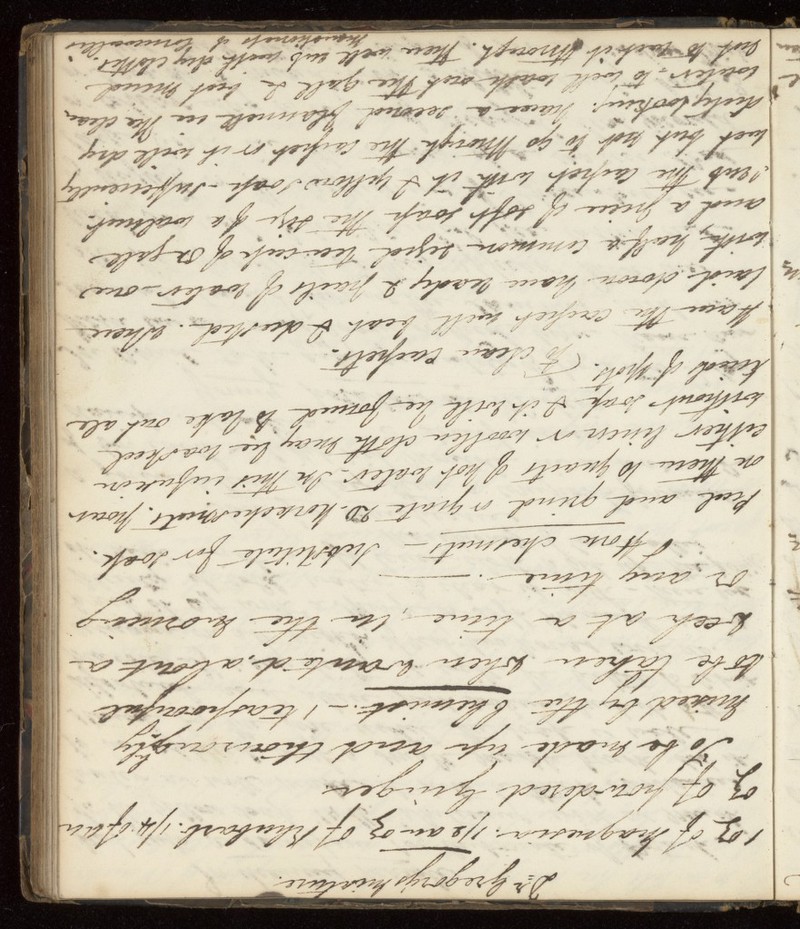 Dr Gregory's Mixture.
1 oz of Magnesia. 1/2 an oz of Rhubarb. 1/4 of an
oz of powdered Ginger
To be made up and thoroughly
mixed by the Chemist. — 1 teaspoonful
to be taken when wanted. about a
week at a time, in the morning
or any time.
Horse chesnuts — substitute for soap.
Peel and grind or grate 20 horsechesnuts. pour
on them 10 quarts of hot water. In this infusion
either linen or woollen cloth may be washed
without soap & it will be found to take out all
kind of spots. To clean carpets.
Have the carpet well beat & dusted. when
laid down have ready 2 pails of water - one
with half a common sized tea-cup of ox gall
and a piece of soft soap the size of a walnut.
rub the carpet with it & yellow soap - sufficiently
wet but not to go through the carpet or it will dry
dirty looking. have a second flannel in the clean
water - to well wash out the gall & but mind
not to soak it through. then well rub with dry cloths.